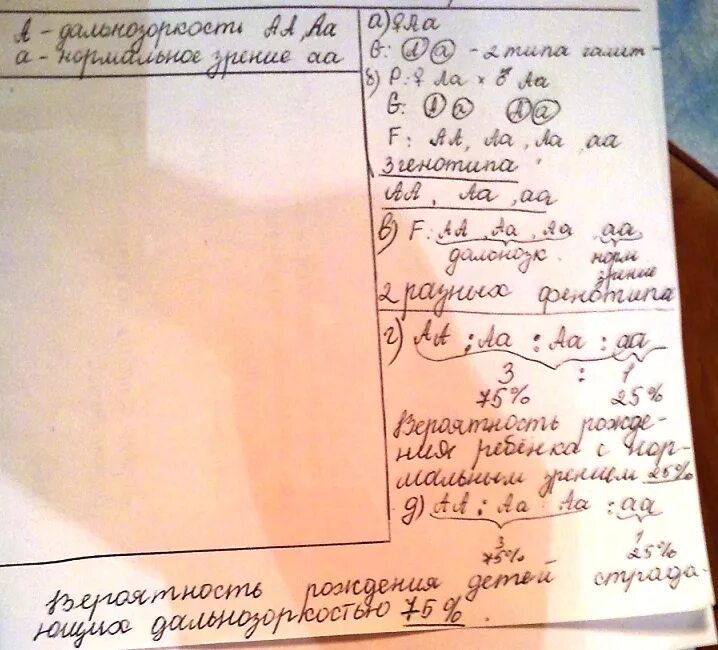 А - дальнозоркость АА, Аа
а - нормальное зрение аа
а) ♀Аа
G: А а - 2 типа гамет
б) P: ♀ Аа × ♂ Аа
G: А а А а
F: АА, Аа, Аа, аа
3 генотипа
АА, Аа, аа
в) F: АА, Аа, Аа, аа
дальнозк. норм
зрение
2 разных фенотипа
г) АА : Аа : Аа : аа
3 : 1
75% 25%
Вероятность рожде-
ния ребёнка с нор-
мальным зрением 25%
д) АА : Аа : Аа : аа
3 1
75% 25%
Вероятность рождения детей страда-
ющих дальнозоркостью 75%.